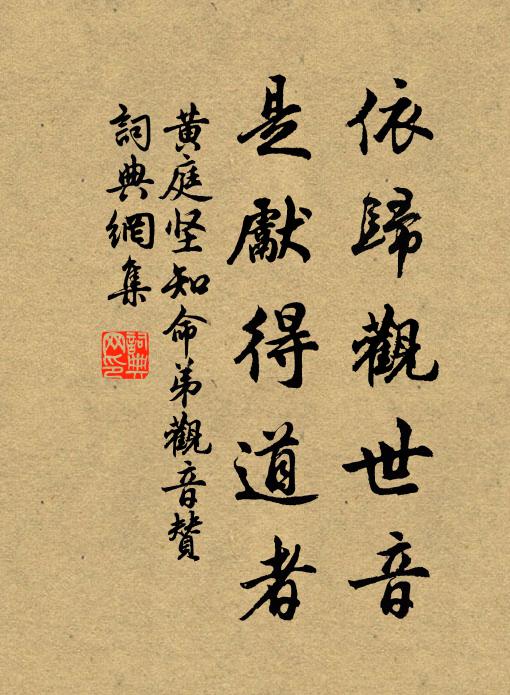 依歸觀世音
是獻得道者
黃庭坚知命弟觀音贊
詞典網集
詞典網印